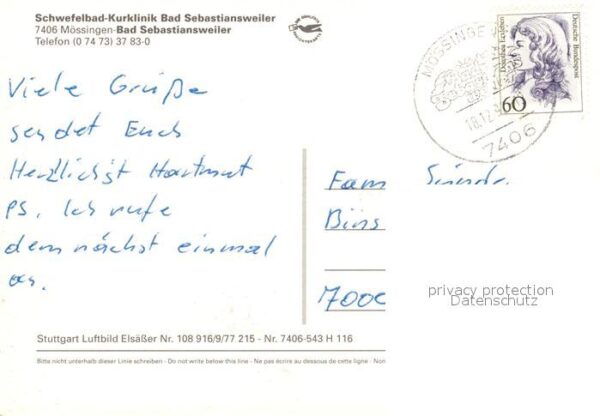 Schwefelbad-Kurklinik Bad Sebastiansweiler
7406 Mössingen-Bad Sebastiansweiler
Telefon (0 74 73) 37 83-0
Viele Grüße
sendet Euch
Herzlichst Hartmut
PS. Ich rufe
demnächst einmal
an.
MÖSSINGE
18.12.
7406
Dorothea Erxleben
Deutsche Bundespost
60
Fam
Bins
7000
privacy protection
Datenschutz
Stuttgart Luftbild Elsäßer Nr. 108 916/9/77 215 - Nr. 7406-543 H 116
Bitte nicht unterhalb dieser Linie schreiben - Do not write below this line - Ne pas écrire au dessous de cette ligne - Non